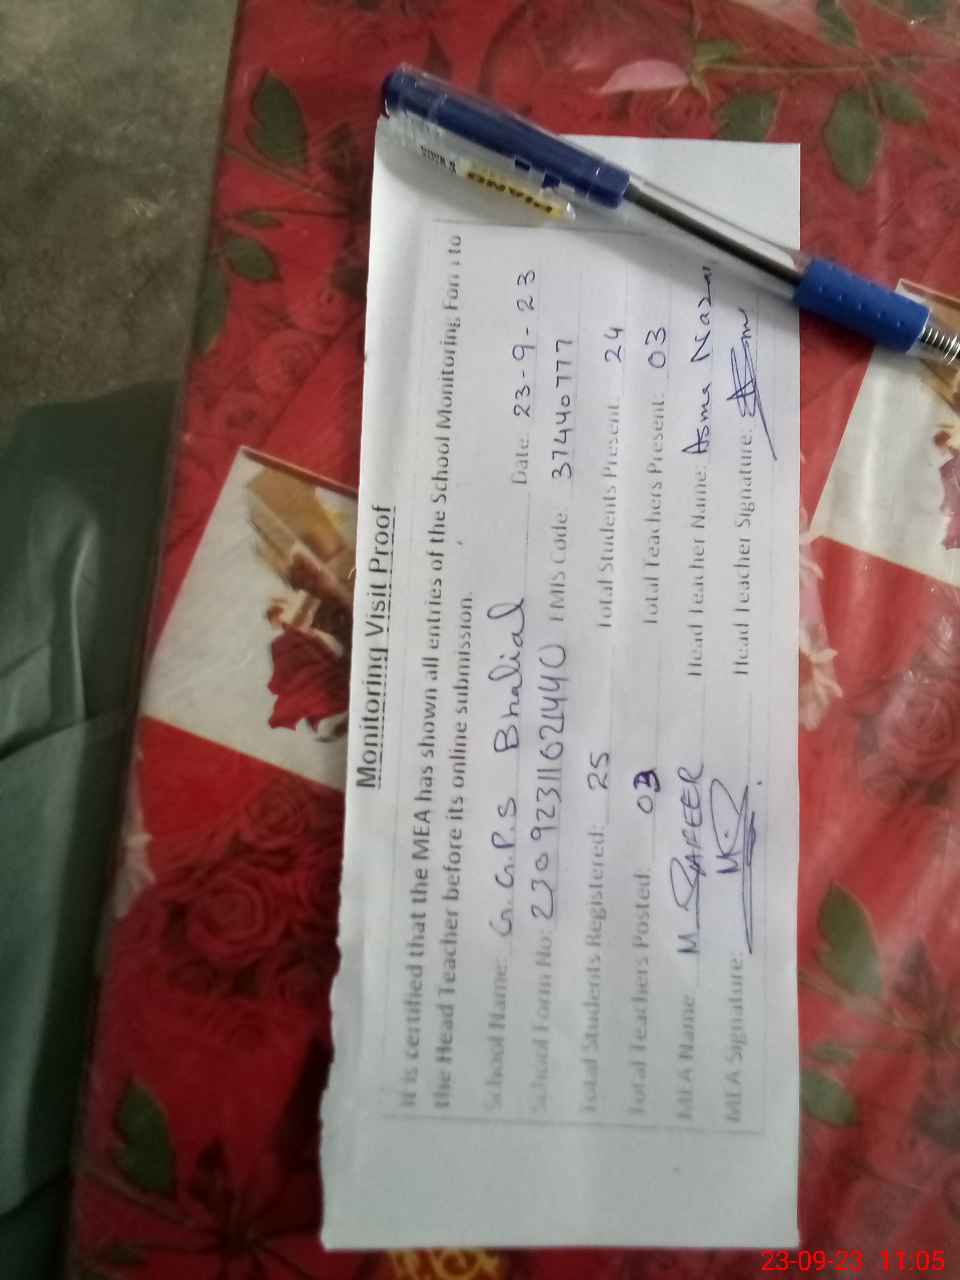 Monitoring Visit Proof
It is certified that the MEA has shown all entries of the School Monitoring Form to
the Head Teacher before its online submission.
School Name: G.G.P.S Bhalial Date: 23-9-23
School Form No: EMIS Code 37440777
Total Students Registered: 25 Total Students Present: 24
Total Teachers Posted: 03 Total Teachers Present: 03
MEA Name: M Head Teacher Name: Asma
MEA Signature: Head Teacher Signature:
PIANO
23-09-23 11:05